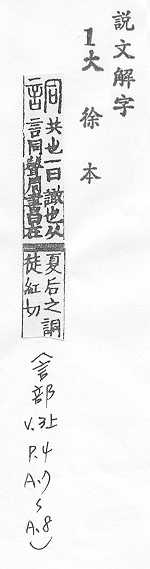 説文解字
1大徐本
詷
共也一曰譀也从
言同聲周書曰在
夏后之詷
徒紅切
(言部
V.3上
P.4
A.7
~
A.8)